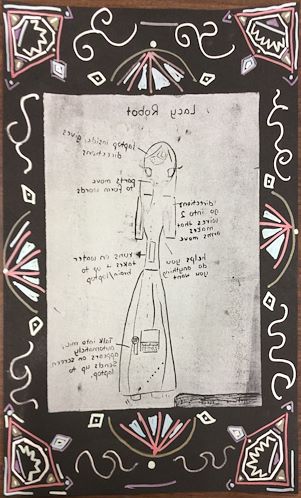 Lacy Robot
laptop inside, gives
directions
parts move
to form words
directions
go into 2
wires that
makes
arms move
runs on water
takes it up to
brain/laptop
helps you
do anything
you want
Talk into mic,
automatically
appears on screen
sends up to
laptop.